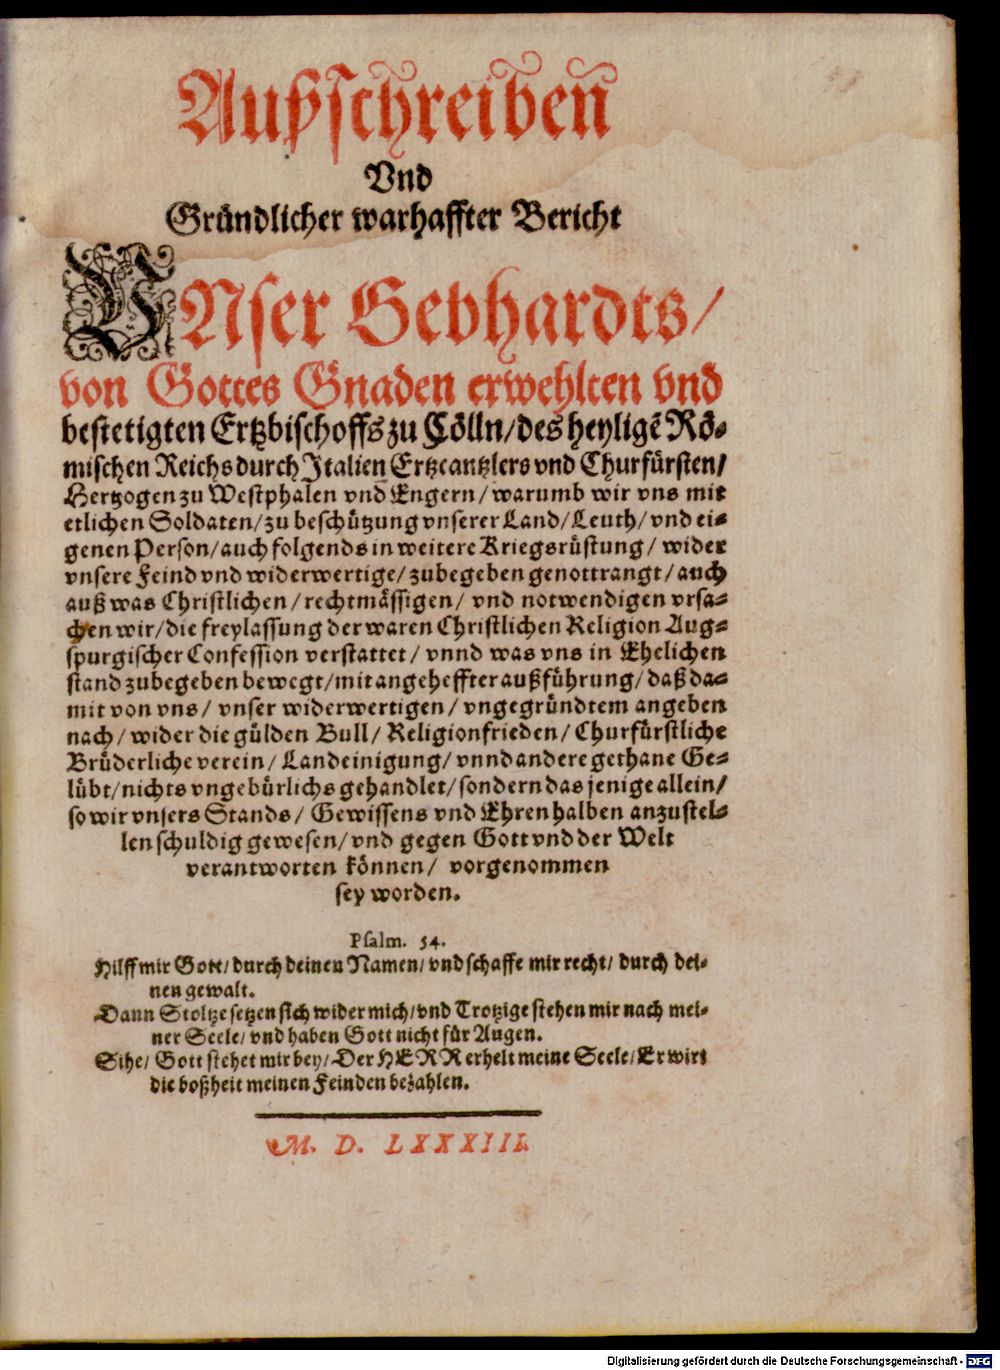 Außschreiben
Vnd
Gründlicher warhaffter Bericht
VNser Gebhardts/
von Gottes Gnaden erwehlten vnd
bestetigten Ertzbischoffs zu Cölln/des heyligē Rö⸗
mischen Reichs durch Italien Ertzcantzlers vnd Churfürsten/
Hertzogen zu Westphalen vnd Engern/warumb wir vns mit
etlichen Soldaten/zu beschützung vnserer Land/Leuth/vnd ei⸗
genen Person/auch folgends in weitere Kriegsrüstung/wider
vnsere Feind vnd widerwertige/zubegeben genottrangt/auch
auß was Christlichen/rechtmässigen/vnd notwendigen vrsa⸗
chen wir/die freylassung der waren Christlichen Religion Aug⸗
spurgischer Confession verstattet/vnnd was vns in Ehelichen
stand zubegeben bewegt/mit angeheffter außführung/daß da⸗
mit von vns/vnser widerwertigen/vngegründtem angeben
nach/wider die gülden Bull/Religionfrieden/Churfürstliche
Brüderliche verein/Landeinigung/vnnd andere gethane Ge⸗
lübt/nichts vngebürlichs gehandlet/sondern das jenige allein/
so wir vnsers Stands/Gewissens vnd Ehren halben anzustel⸗
len schuldig gewesen/vnd gegen Gott vnd der Welt
verantworten können/vorgenommen
sey worden.
Psalm. 54.
Hilff mir Gott/durch deinen Namen/vnd schaffe mir recht/durch dei⸗
nen gewalt.
Dann Stoltze setzen sich wider mich/vnd Trotzige stehen mir nach mei⸗
ner Seele/vnd haben Gott nicht für Augen.
Sihe/Gott stehet mir bey/Der HERR erhelt meine Seele/Er wirt
die boßheit meinen Feinden bezahlen.
M. D. LXXXIII.
Digitalisierung gefördert durch die Deutsche Forschungsgemeinschaft - DFG